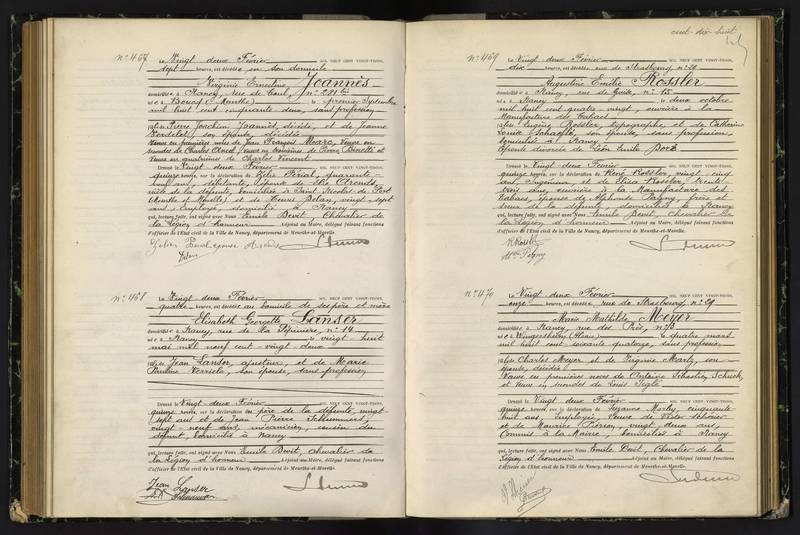 n° 467
Le Vingt deux Février MIL NEUF CENT VINGT-TROIS,
sept heures, est décédée en son domicile
Virginie Ernestine Joannès
domiciliée à Nancy, rue de n° 221 bis
née à Boucq (Meurthe) le premier Septembre
mil huit cent cinquante deux, sans profession
fille de Pierre Joachim Joannès, décédé, et de Jeanne
son épouse, décédée
Veuve en premières noces de Jean François Veuve en
secondes de Charles Veuve en troisièmes de et
Veuve en quatrièmes de Charles Vincent
Dressé le Vingt deux Février
quinze heures, sur la déclaration de quarante-
neuf ans, débitante, épouse de
de la défunte, domiciliée à Saint Nicolas de Port
(Meurthe et Moselle) et de Henri vingt sept
ans, employé, domicilié à Nancy
qui, lecture faite, ont signé avec Nous Emile Chevalier de
la Légion d'honneur Adjoint au Maire, délégué faisant fonctions
d'officier de l'Etat civil de la Ville de Nancy, département de Meurthe-et-Moselle.
n° 468
Le Vingt deux Février MIL NEUF CENT VINGT-TROIS,
quatre heures, est décédée au domicile de ses père et mère
Elisabeth Georgette Lanser
domiciliée à Nancy, rue de la Pépinière, n° 14
née à Nancy le vingt huit
mai mil neuf cent vingt deux
fille de Jean Lanser, ajusteur, et de Marie
Pauline son épouse, sans profession
Dressé le Vingt deux Février
quinze heures, sur la déclaration du père de la défunte, vingt
sept ans et de Jean Pierre
vingt-neuf ans, mécanicien, cousin du
défunt, domiciliés à Nancy
qui, lecture faite, ont signé avec Nous Emile Chevalier de
la Légion d'honneur Adjoint au Maire, délégué faisant fonctions
d'officier de l'Etat civil de la Ville de Nancy, département de Meurthe-et-Moselle.
Jean Lanser
cent-dix-huit
n° 469
Le Vingt deux Février MIL NEUF CENT VINGT-TROIS,
dix heures, est décédée rue de Strasbourg n° 29
Augustine Emilie Rossler
domiciliée à Nancy, rue de n° 15
née à Nancy le deux octobre
mil huit cent quatre vingt, ouvrière à la
Manufacture des Tabacs
fille de Eugène Rossler, typographe, et de Catherine
Louise son épouse, sans profession,
domiciliés à Nancy
Epouse divorcée de Léon Emile
Dressé le Vingt deux Février
quinze heures, sur la déclaration de René Rossler, vingt cinq
ans, et de Rossler, trente
trois ans, ouvrière à la Manufacture des
Tabacs, épouse de Alphonse frère et
sœur de la défunte, domiciliés à Nancy
qui, lecture faite, ont signé avec Nous Emile Chevalier de
la Légion d'honneur Adjoint au Maire, délégué faisant fonctions
d'officier de l'Etat civil de la Ville de Nancy, département de Meurthe-et-Moselle.
n° 470
Le Vingt deux Février MIL NEUF CENT VINGT-TROIS,
onze heures, est décédée rue de Strasbourg, n° 29
Marie Mathilde Meyer
domiciliée à Nancy, rue des Prés, n° 73
née à le quatre mars
mil huit cent soixante quatorze, sans profession
fille de Charles Meyer et de Virginie Marty, son
épouse, décédés
Veuve en premières noces de Antoine Sébastien
et Veuve en secondes de Louis
Dressé le Vingt deux Février
quinze heures, sur la déclaration de Suzanne Marty, cinquante
huit ans, employée, Veuve de Victor
et de Maurice vingt deux ans,
Commis à la Mairie, domiciliés à Nancy
qui, lecture faite, ont signé avec Nous Emile Chevalier de la
Légion d'honneur Adjoint au Maire, délégué faisant fonctions
d'officier de l'Etat civil de la Ville de Nancy, département de Meurthe-et-Moselle.